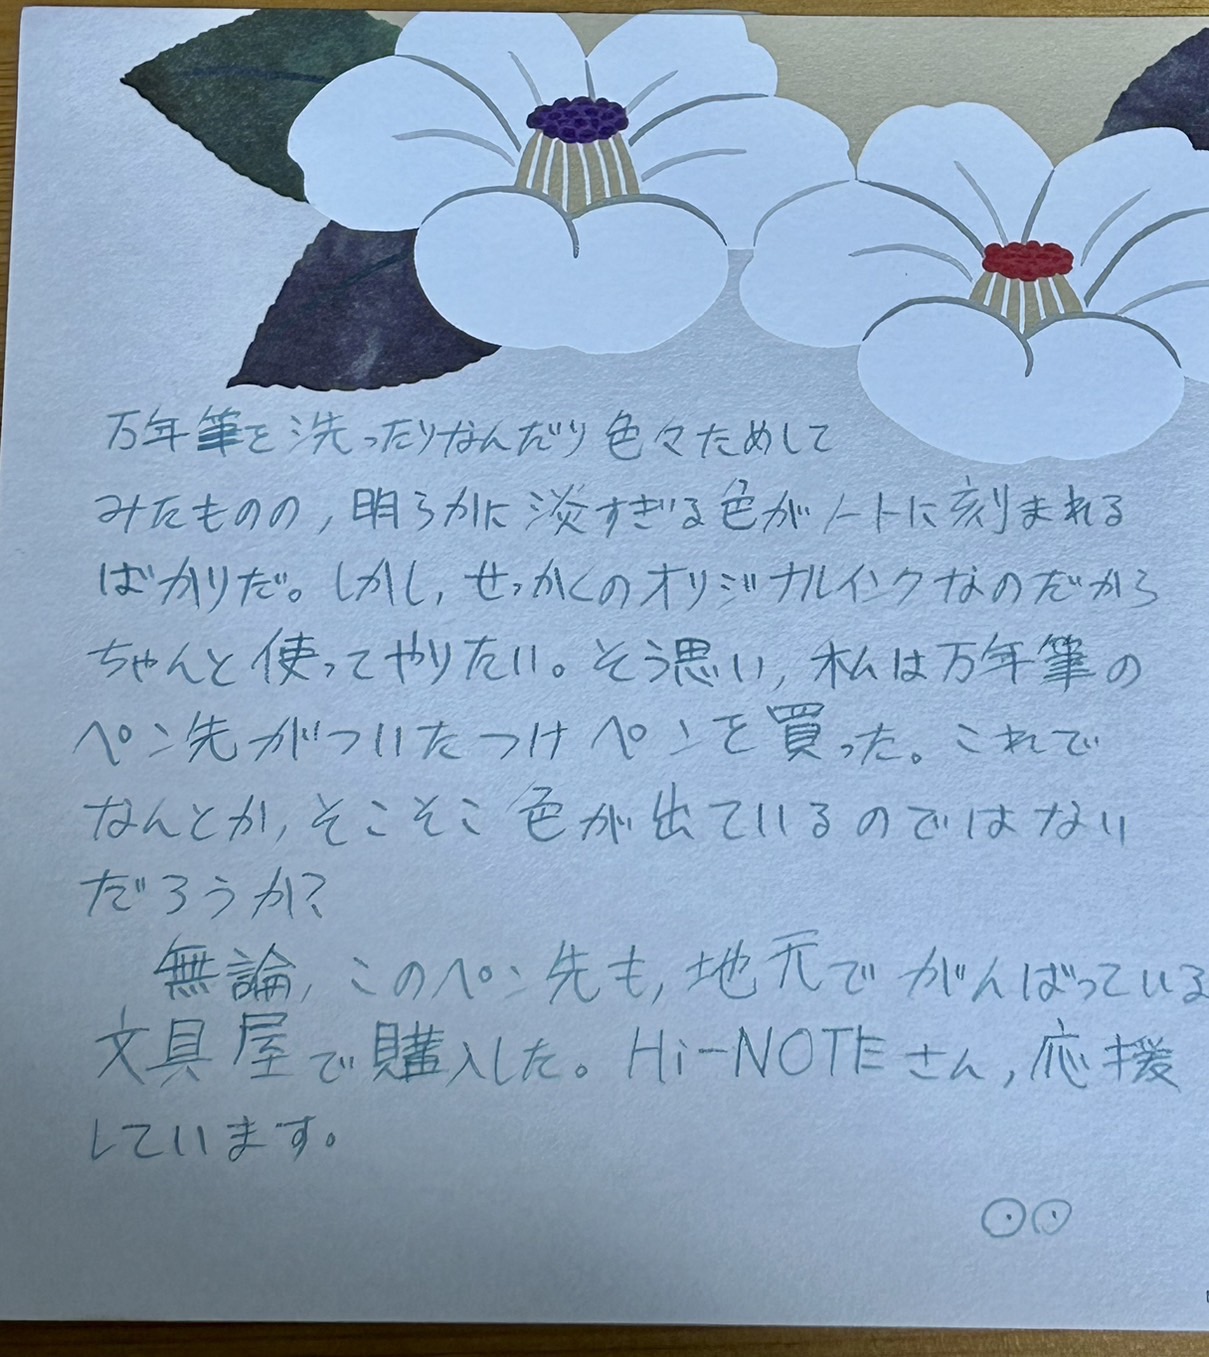 万年筆を洗ったりなんだり色々ためして
みたものの,明らかに淡すぎる色がノートに刻まれる
ばかりだ。しかし,せっかくのオリジナルインクなのだから
ちゃんと使ってやりたい。そう思い,私は万年筆の
ペン先がついたつけペンを買った。これで
なんとか,そこそこ色が出ているのではない
だろうか?
無論,このペン先も,地元でがんばっている
文具屋で購入した。Hi-NOTEさん,応援
しています。